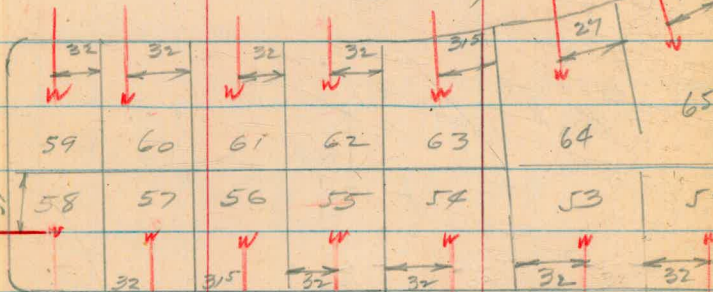 32 32 32 32 31⁵ 27
W W W W W W W
59 60 61 62 63 64 65
58 57 56 55 54 53 5
W W W W W W W
32 31⁵ 32 32 32 32